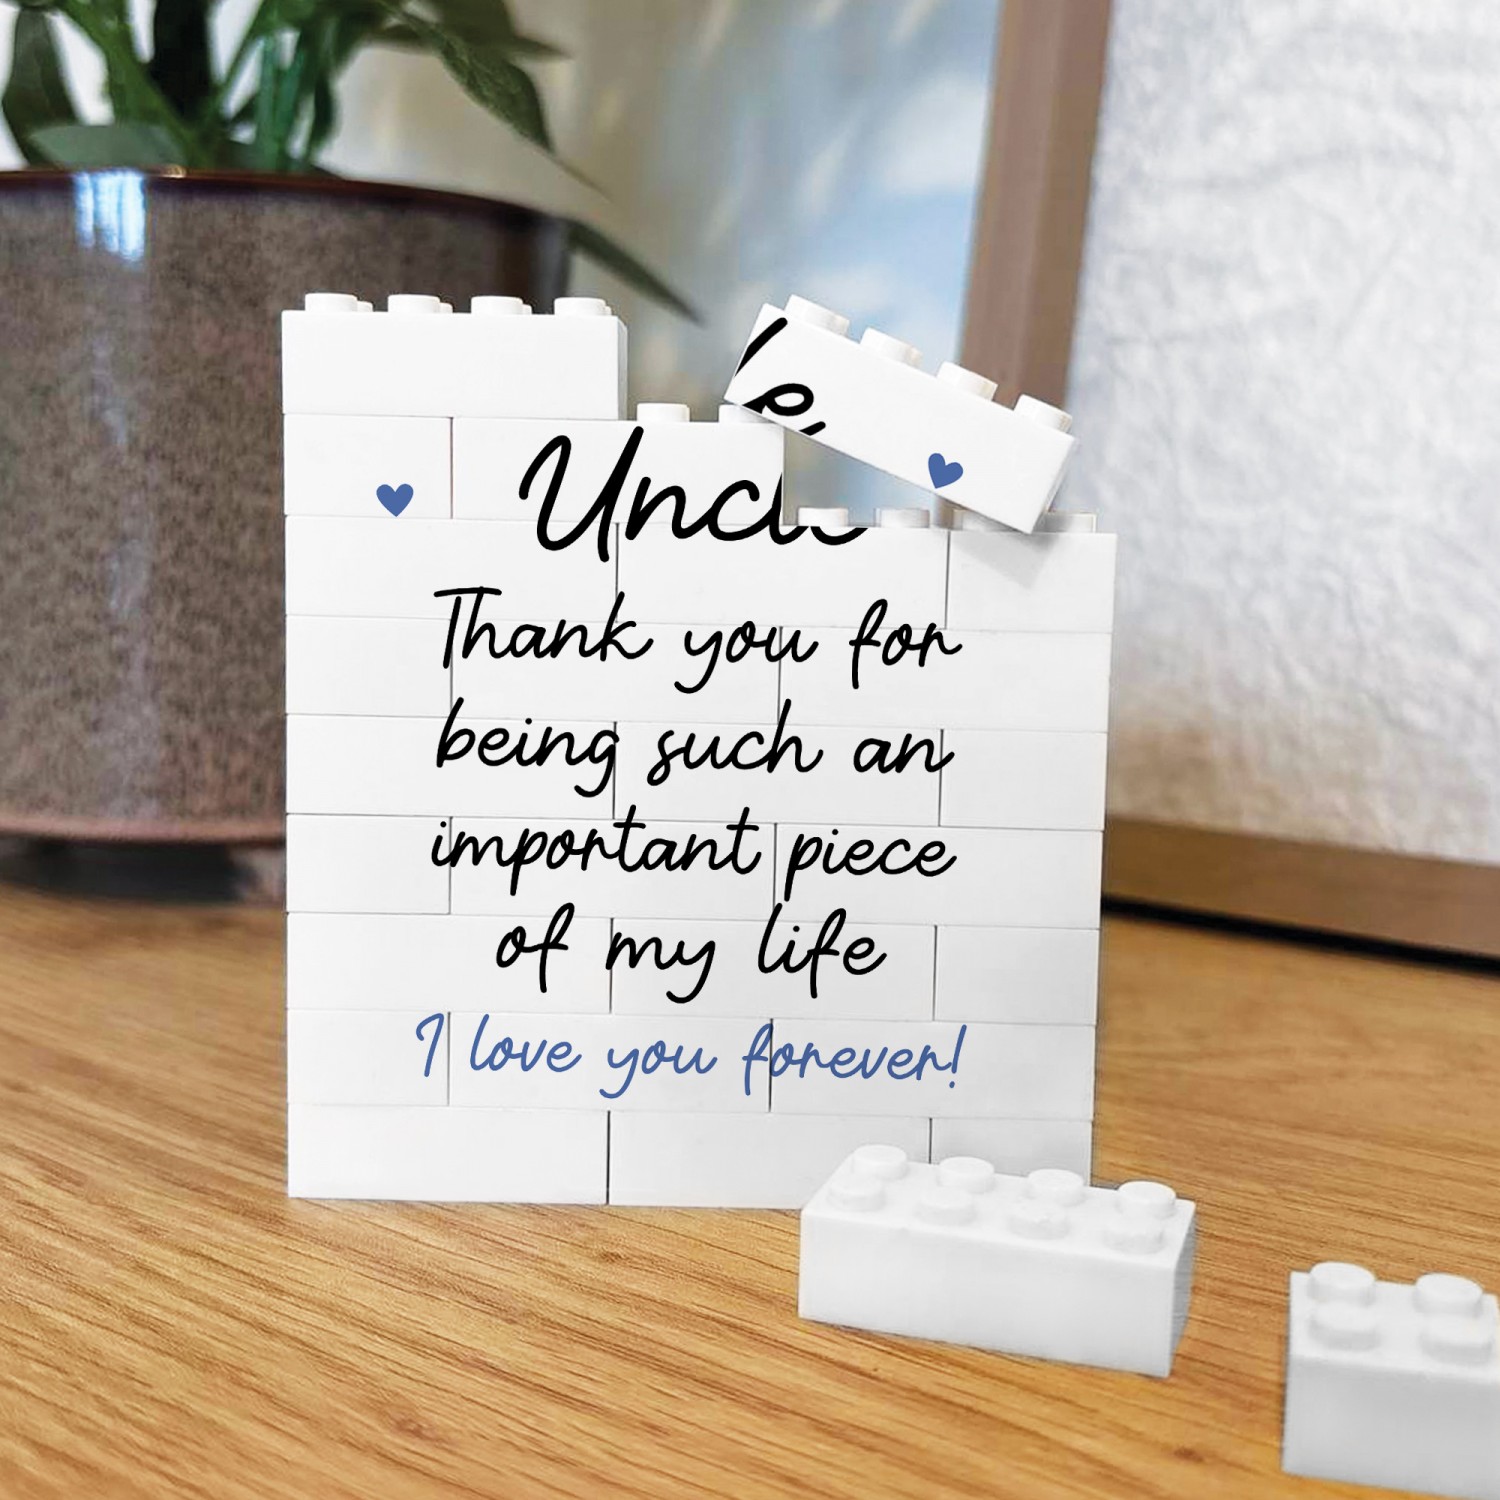 Uncle,
Thank you for
being such an
important piece
of my life
I love you forever!